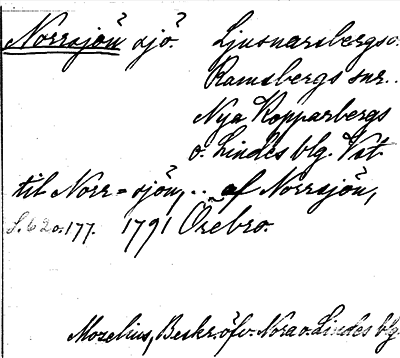 Norrsjön sjö. Ljusnarsbergs o.
Ramsbergs snr..
Nya Kopparbergs
o. Lindes blg. Vst
til Norr=sjön, .. af Norrsjön,
S. 62 o. 177. 1791 Örebro.
Mozelius, Beskr. öfv. Nora o. Lindes blg.